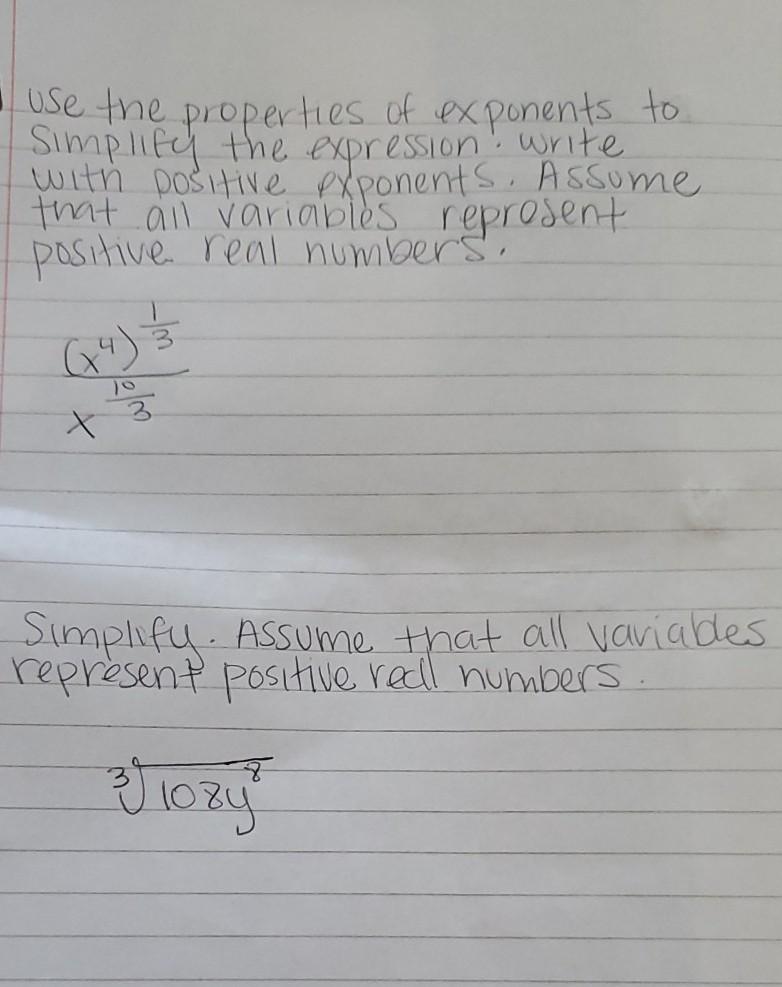 Use the properties of exponents to
Simplify the expression. Write
with positive exponents. Assume
that all variables represent
positive real numbers.
(x⁴)^(1/3)
x^(10/3)
Simplify. Assume that all variables
represent positive real numbers.
³√108y⁸